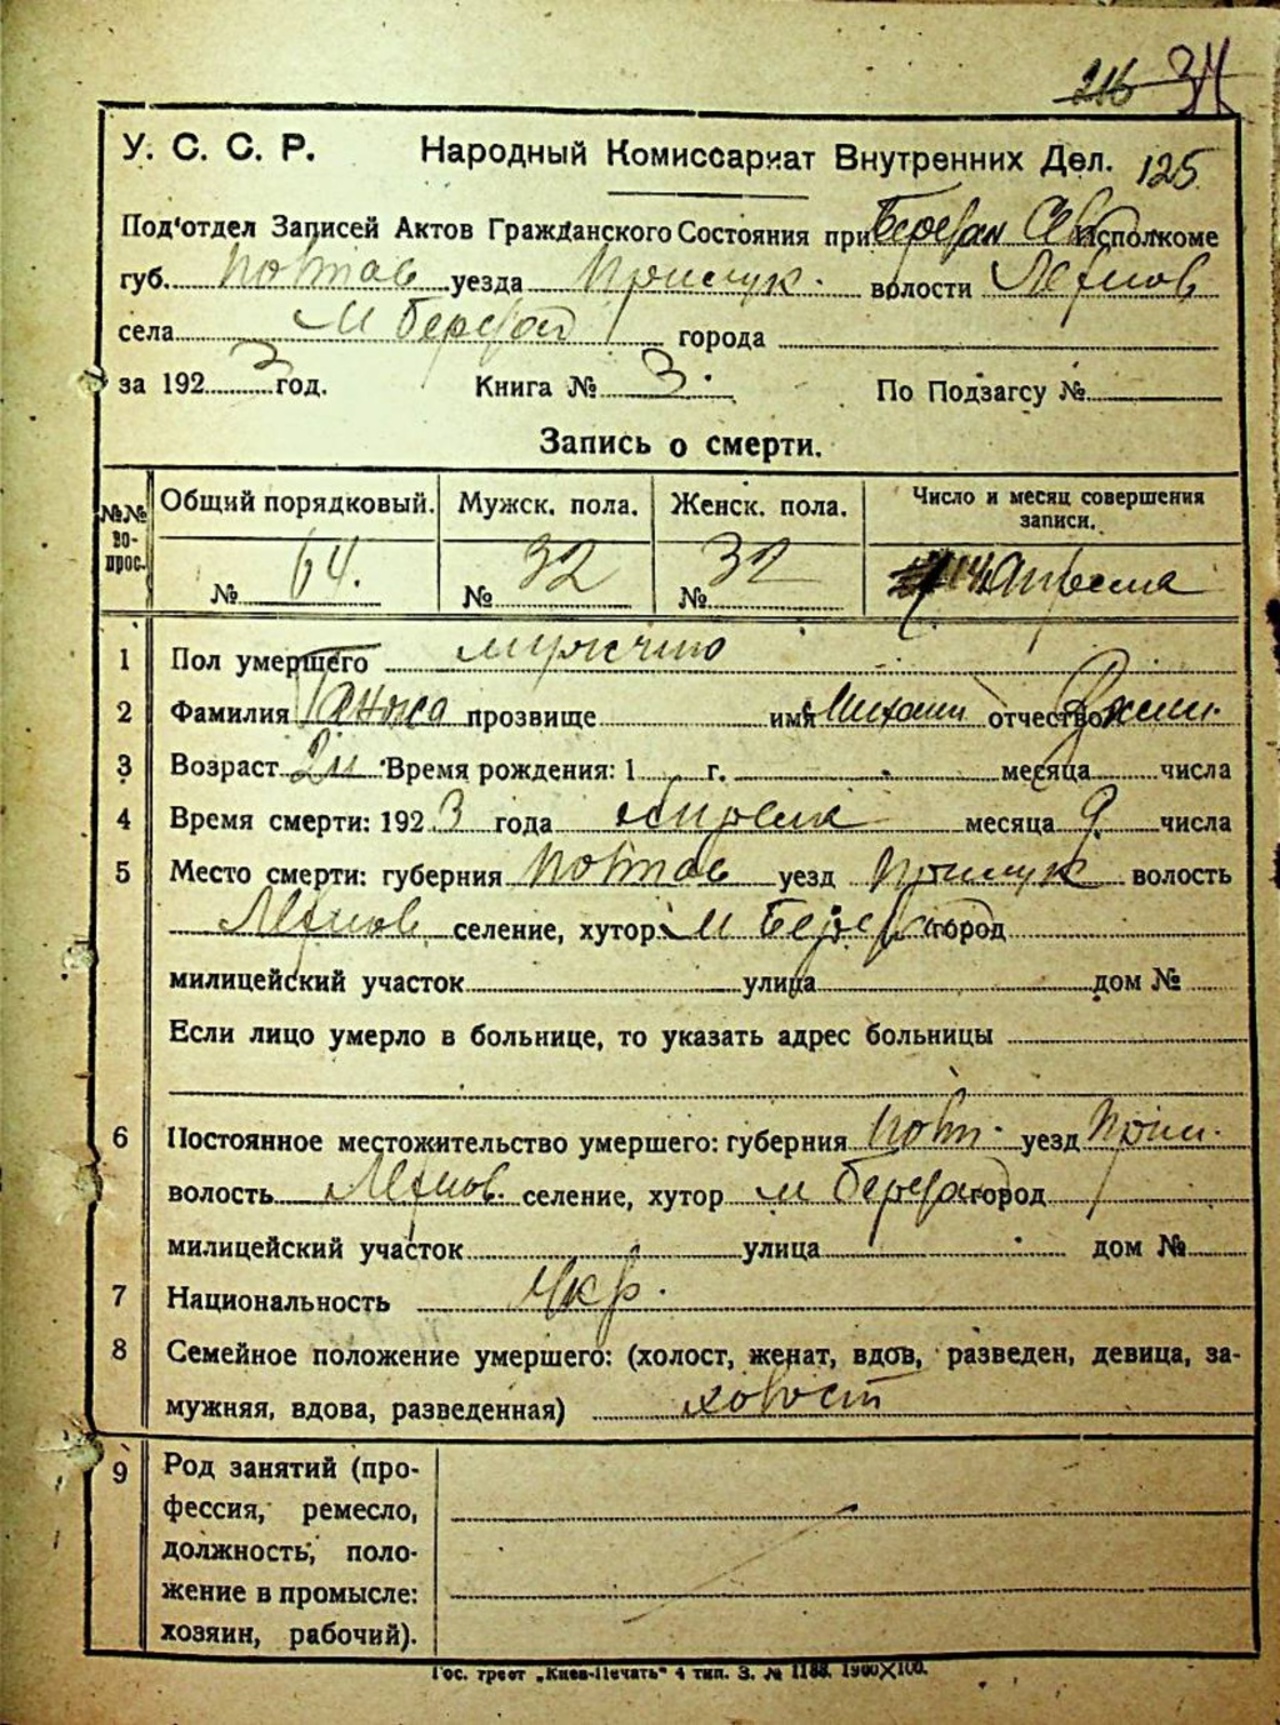 216 34
У. С. С. Р. Народный Комиссариат Внутренних Дел. 125
Под'отдел Записей Актов Гражданского Состояния при исполкоме
губ. Полтав уезда Прилук. волости
села м города
за 1923 год. Книга № 3. По Подзагсу №
Запись о смерти.
№№ вопрос. Общий порядковый. Мужск. пола. Женск. пола. Число и месяц совершения записи.
№ 64. № 32 № 32 14 Апреля
1 Пол умершего
2 Фамилия прозвище имя Михаил отчество
3 Возраст Время рождения: 1 г. месяца числа
4 Время смерти: 1923 года Апреля месяца 9 числа
5 Место смерти: губерния Полтав уезд Прилук волость
селение, хутор м город
милицейский участок улица дом №
Если лицо умерло в больнице, то указать адрес больницы
6 Постоянное местожительство умершего: губерния Полт. уезд Прил.
волость селение, хутор м город
милицейский участок улица дом №
7 Национальность Укр.
8 Семейное положение умершего: (холост, женат, вдов, разведен, девица, за-
мужняя, вдова, разведенная) холост
9 Род занятий (про-
фессия, ремесло,
должность, поло-
жение в промысле:
хозяин, рабочий).
Гос. трест „Киев-Печать" 4 тип. З. № 1188. 1900×100.